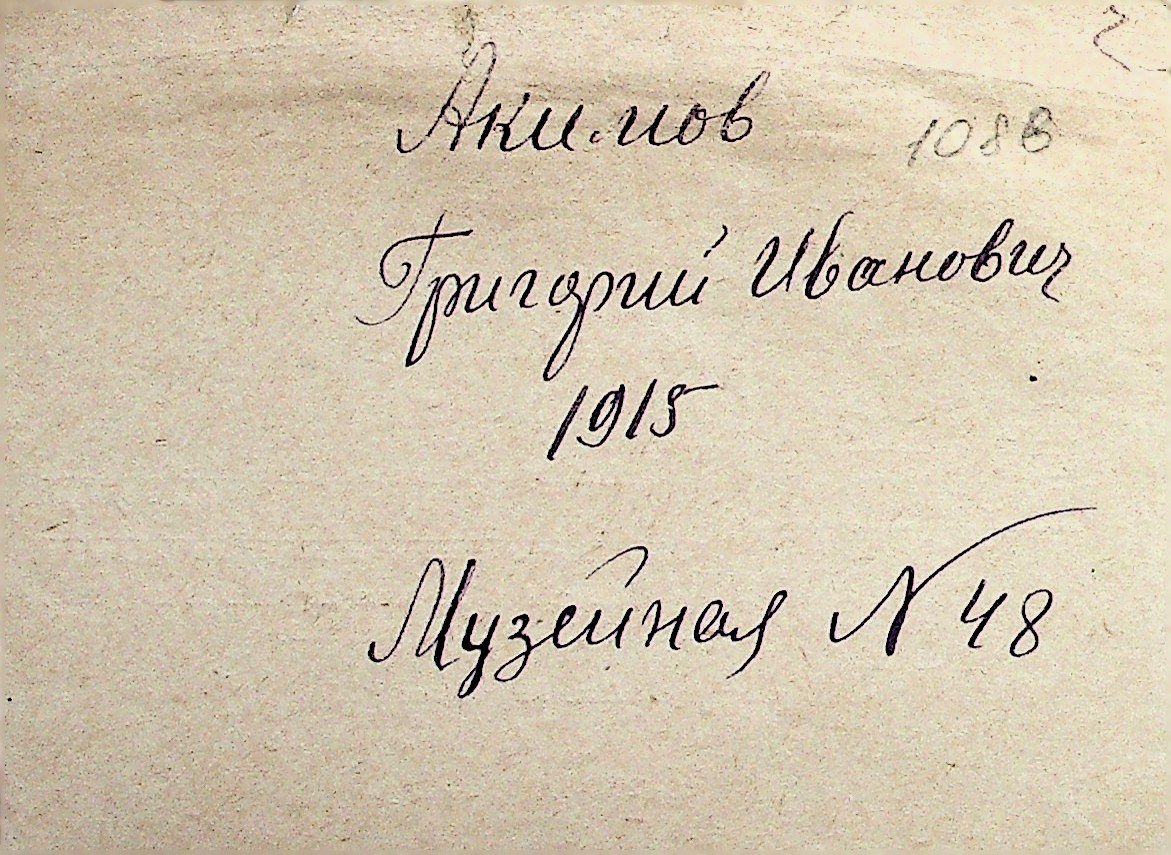 Акимов 108В
Григорий Иванович
1915
Музейная N 48